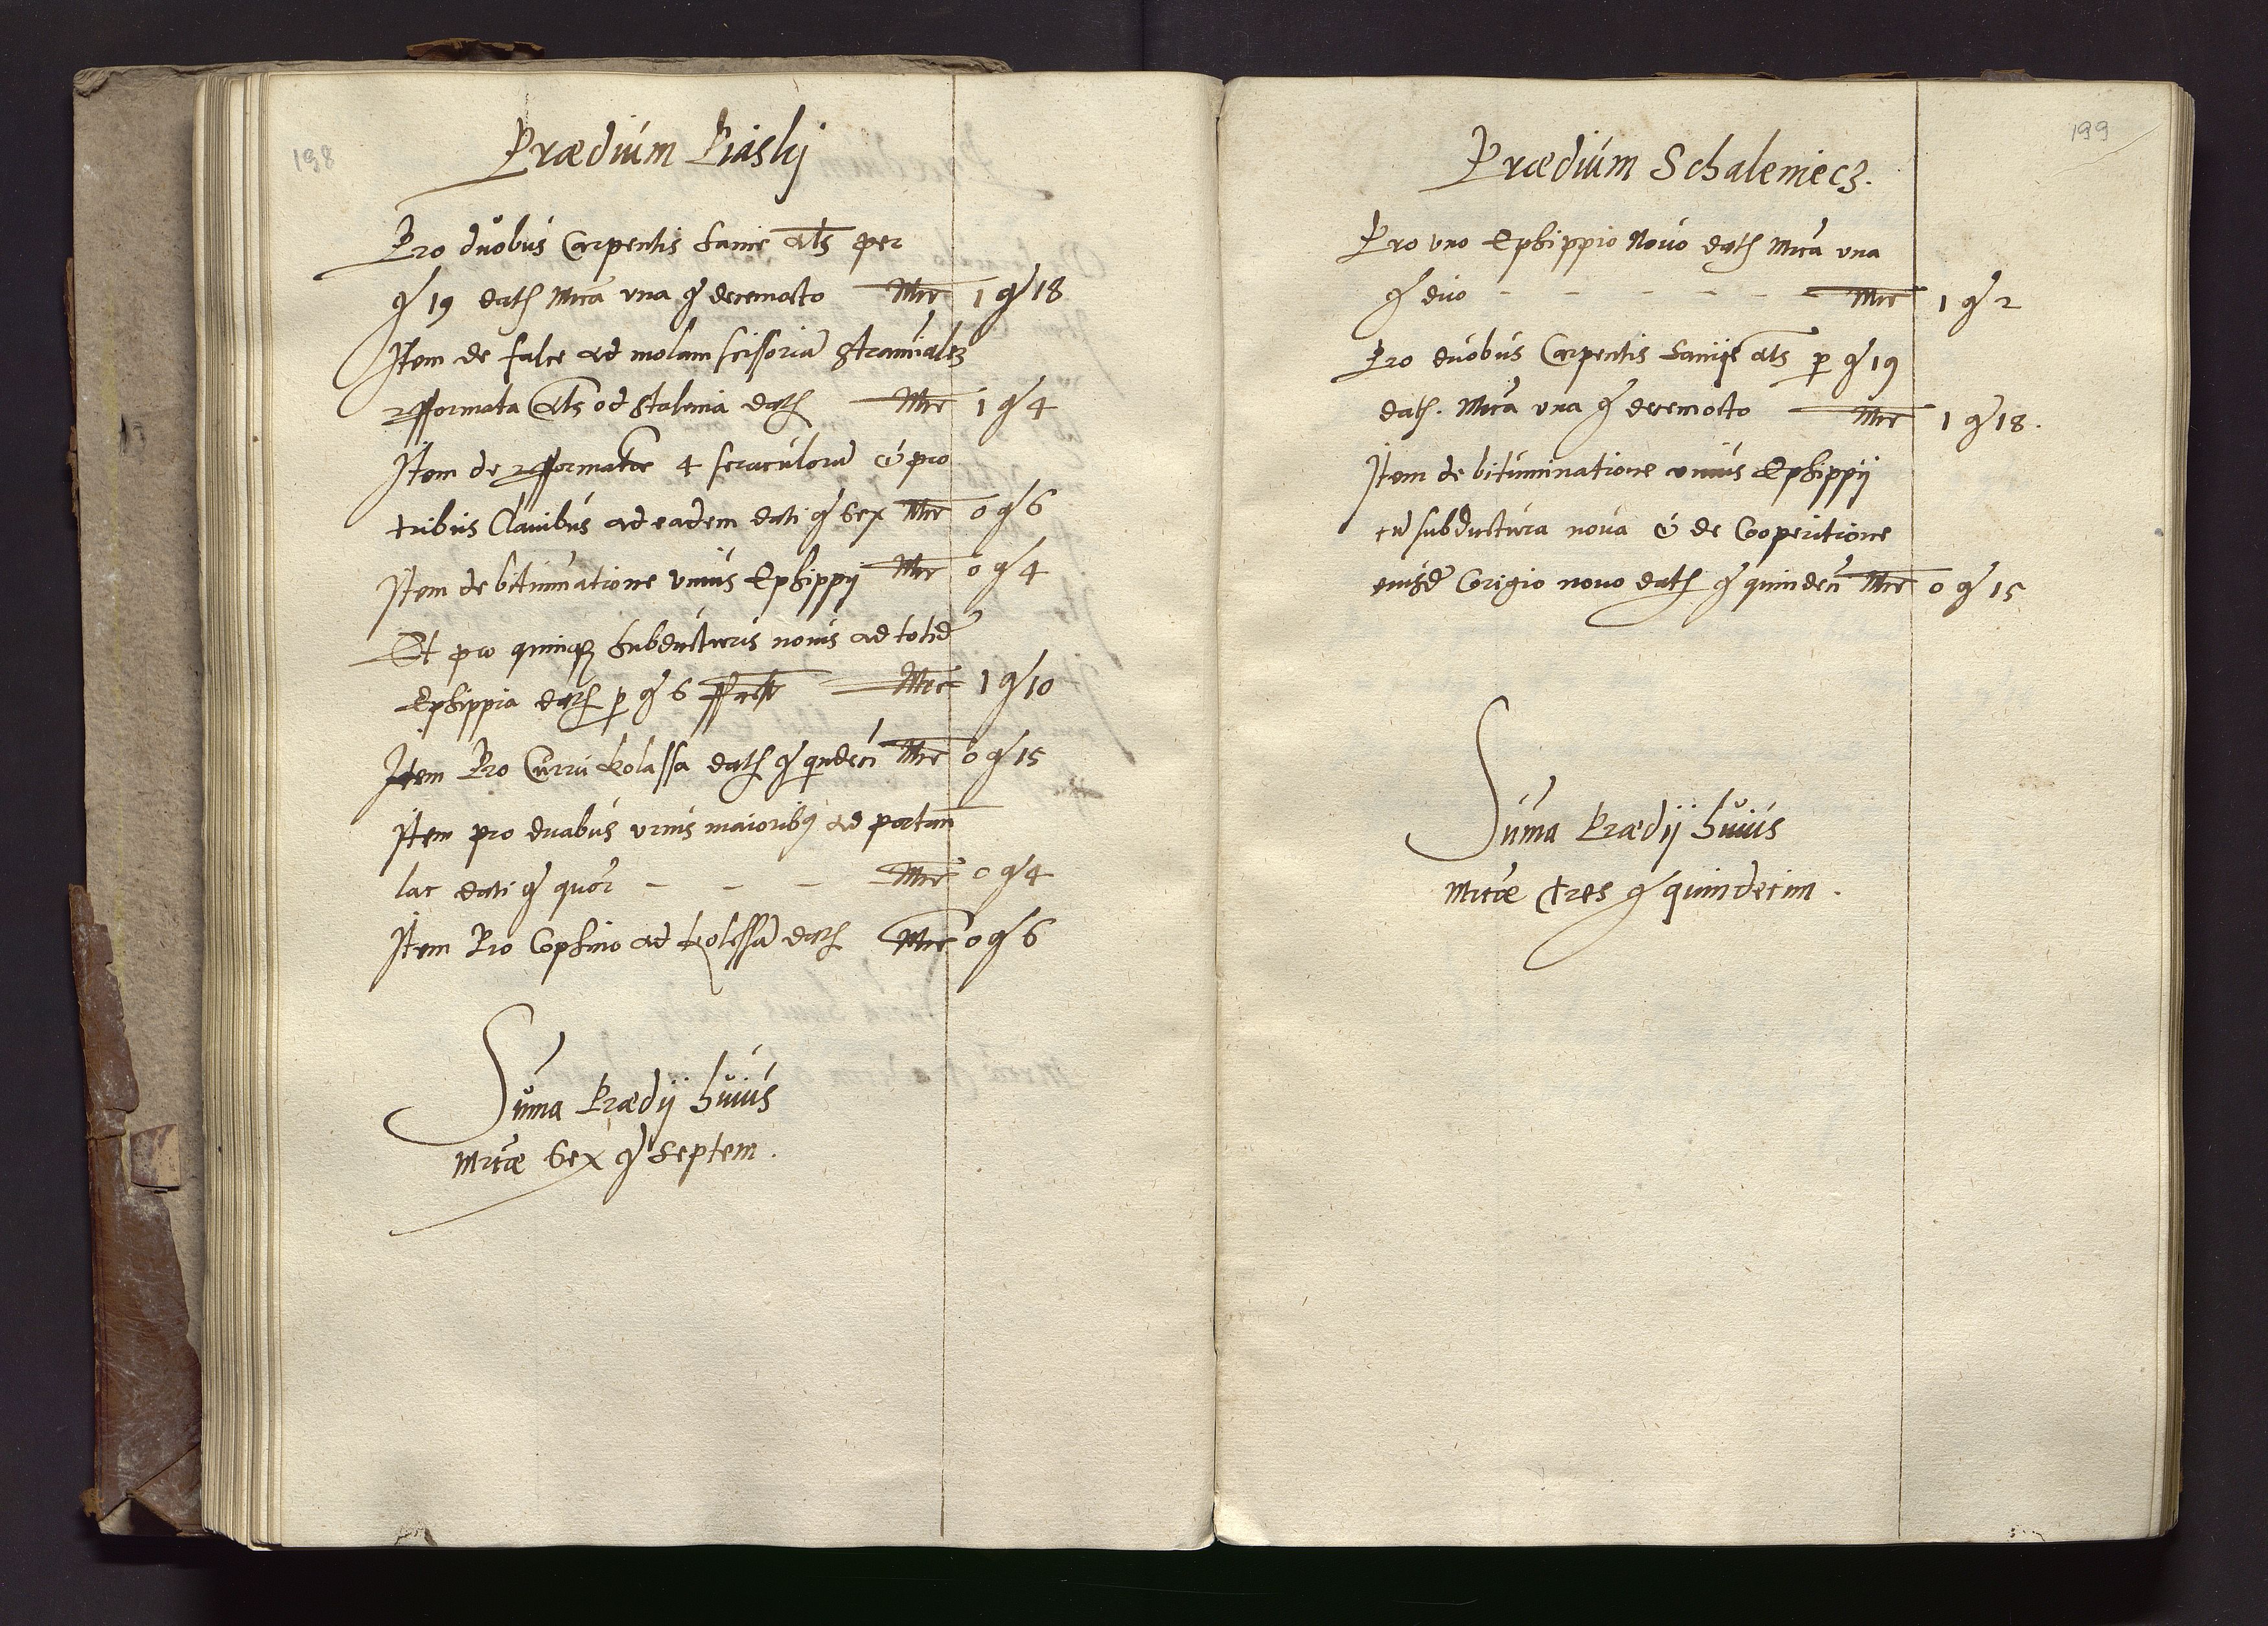 198
Prædium Piaskj
Pro duobus Carpentis Sanie als per
gͦ 19 dath Mrca vna gͦ decemocto Mrc 1 gͦ 18
Item de falce ad molam scissoriā Straminalez
refformata als od stalenia dath Mrc 1 gͦ 4
Item de refformatōe 4 seraculorū & pro
tribus Clauibus ad eadem dati gͦ sex Mrc 0 gͦ 6
Item de bituminatione vnius Ephippij Mrc 0 gͦ 4
Et pro quinqȝ Subducturis nouis ad totidē
Ephippia dath p gͦ 6 Mrc 1 gͦ 10
Item Pro Curru kolassa dath gͦ quindecī Mrc 0 gͦ 15
Item pro duabus vrnis maioribȝ ad portan̄
lac dati gͦ quor - - - Mrc 0 gͦ 4
Item Pro Cophino ad kolassā dath Mrc 0 gͦ 6
Suma Prædij huius
Mrcæ sex gͦ septem.
199
Prædium Schaleniecz.
Pro vno Ephippio Nouo dath Mrca vna
gͦ duo - - - - - - Mrc 1 gͦ 2
Pro duobus Carpentis Sanijs als p gͦ 19
dath. Mrca vna gͦ decemocto Mrc 1 gͦ 18.
Item de bituminatione vnius Ephippij
cū subductura noua & de Cooperitione
eiusdē Corigio nouo dath gͦ quindecī Mrc 0 gͦ 15
Suma Prædij huius
Mrcæ tres gͦ quindecim.